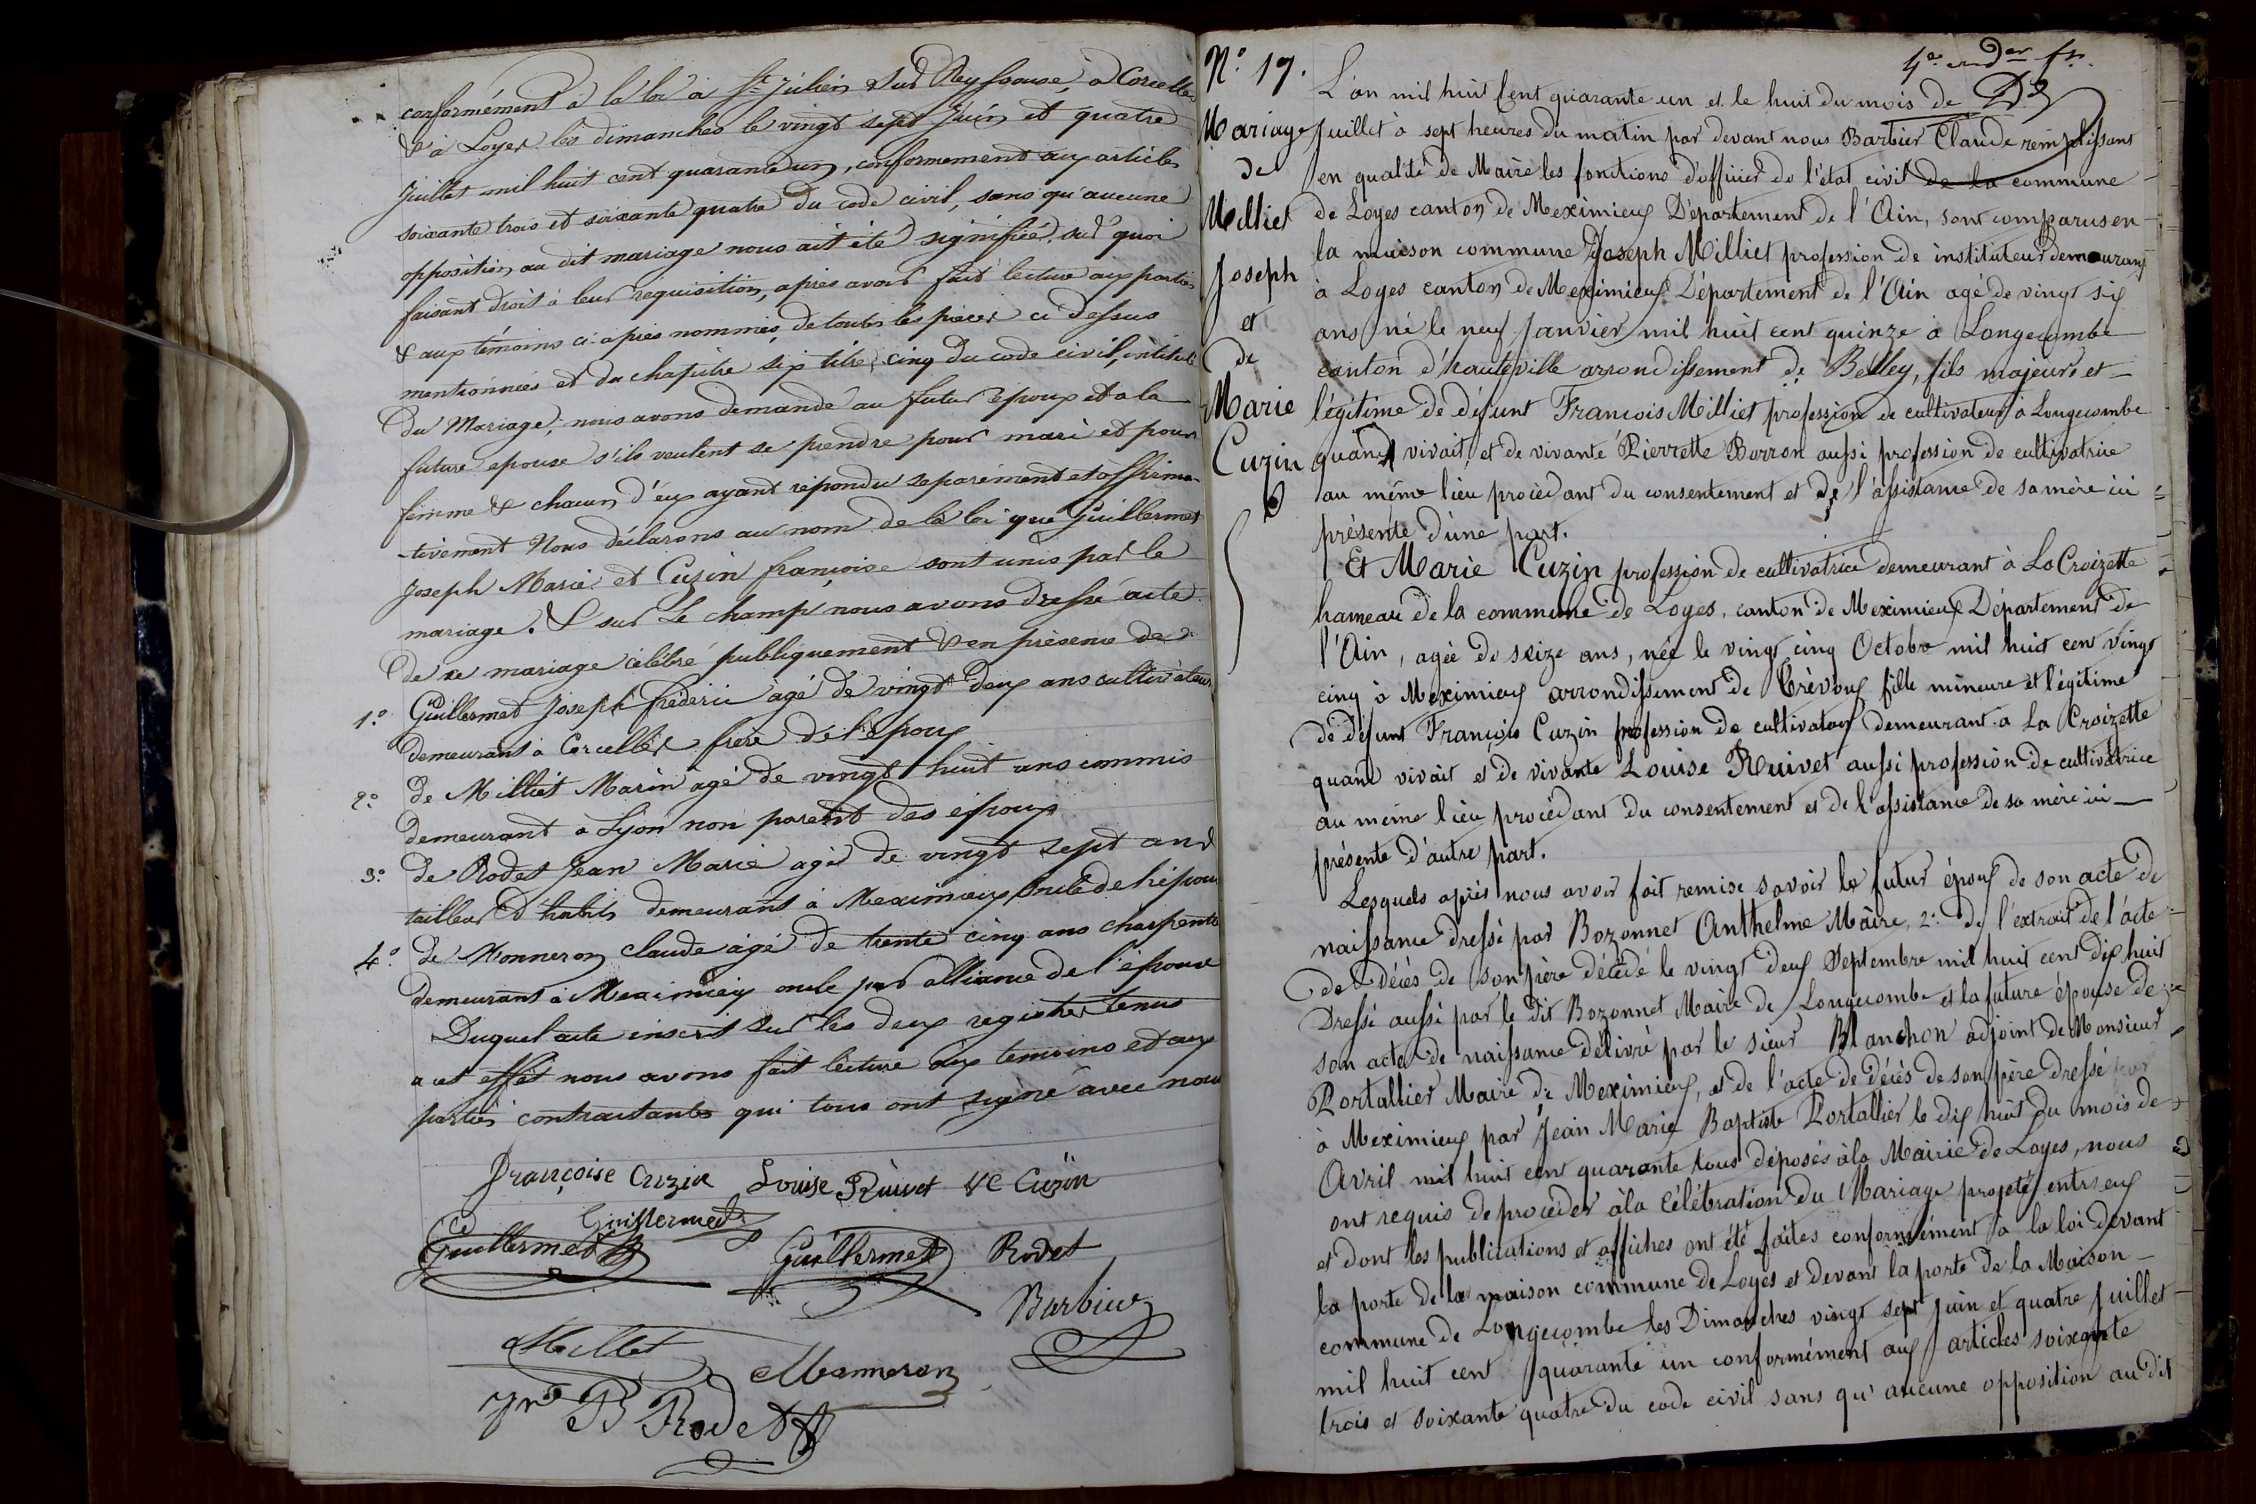 conformément à la loi à St Julien sur Reyssouse, à Corcelles
& à Loyes les dimanches le vingt sept Juin et quatre
Juillet mil huit cent quarante un, conformement aux articles
soixante trois et soixante quatre du code civil, sans qu'aucune
opposition au dit mariage nous ait été signifiée. sur quoi
faisant droit à leur requisition, après avoir fait lecture aux parties
& aux témoins ci-après nommés, de toutes les pièces ci dessus
mentionnées et du chapitre six titre cinq du code civil, intitulé
Du Mariage; nous avons demandé au futur epoux et a la
future epouse s'ils veulent se prendre pour mari et pour
femme & chacun d'eux ayant répondu separément et affirma-
-tivement Nous déclarons au nom de la loi que Guillermet
Joseph Marie et Cuzin françoise sont unis par le
mariage. & sur le champ nous avons dressé acte
de ce mariage célébré publiquement & en présence de
1.° Guillermet Joseph fréderic agé de vingt deux ans cultivateur
demeurant à Corcelles frere de l'époux
2.° de Milliet Marin agé de vingt huit ans commis
demeurant à Lyon non parent des époux
3.° de Rodet Jean Marie agé de vingt sept ans
tailleur d'habits demeurant à Meximieux oncle de l'épouse
4.° de Monneron claude agé de trente cinq ans charpentier
demeurant à Meximieux oncle par alliance de l'épouse
Duquel acte inscrit sur les deux registres tenus
a cet effet nous avons fait lecture aux temoins et aux
parties contractantes qui tous ont signé avec nous
françoise cuzin Louise Ruivet Ve Cuzin
Guillermet
Guillermet Guillermet Rodet
Barbier
Milliet
Monneron
B Rodet
N.° 17.
Mariage
de
Milliet
Joseph
et
de
Marie
Cuzin
L'an mil huit cent quarante un et le huit du mois de
Juillet à sept heures du matin par devant nous Barbier Claude remplissant
en qualité de Maire les fonctions d'officier de l'état civil de la commune
de Loyes canton de Meximieux Département de l'Ain, sont comparus en
la maison commune Joseph Milliet profession de instituteur demeurant
à Loyes canton de Meximieux Département de l'Ain agé de vingt six
ans né le neuf Janvier mil huit cent quinze à Longecombe
canton d'hauteville arrondissement de Belley, fils majeur et
légitime de défunt François Milliet profession de cultivateur à Longecombe
quand vivait et de vivante Pierrette Borron aussi profession de cultivatrice
au même lieu procédant du consentement et de l'assistance de sa mère ici
présente d'une part.
Et Marie Cuzin profession de cultivatrice demeurant à La Croizette
hameau de la commune de Loyes, canton de Meximieux Département de
l'Ain, agée de seize ans, née le vingt cinq Octobre mil huit cent vingt
cinq à Meximieux arrondissement de Trévoux fille mineure et légitime
de défunt François Cuzin profession de cultivateur demeurant à La Croizette
quand vivait et de vivante Louise Ruivet aussi profession de cultivatrice
au même lieu procédant du consentement et de l'assistance de sa mère ici
présente d'autre part.
Lesquels après nous avoir fait remise savoir le futur époux de son acte de
naissance dressé par Bozonnet Anthelme Maire, 2.° de l'extrait de l'acte
de décès de son père décédé le vingt deux Septembre mil huit cent dix huit
Dressé aussi par le dit Bozonnet Maire de Longecombe et la future épouse de
son acte de naissance délivré par le sieur Blanchon adjoint de Monsieur
Portallier Maire de Meximieux, et de l'acte de décès de son père dressé
à Meximieux par Jean Marie Baptiste Portallier le dix huit du mois de
Avril mil huit cent quarante tous déposés à la Mairie de Loyes, nous
ont requis de procéder à la célébration du Mariage projeté entr'eux
et dont les publications et affiches ont été faites conformément à la loi devant
la porte de la maison commune de Loyes et devant la porte de la Maison
commune de Longecombe les Dimanches vingt sept Juin et quatre Juillet
mil huit cent quarante un conformément aux articles soixante
trois et soixante quatre du code civil sans qu'aucune opposition au dit